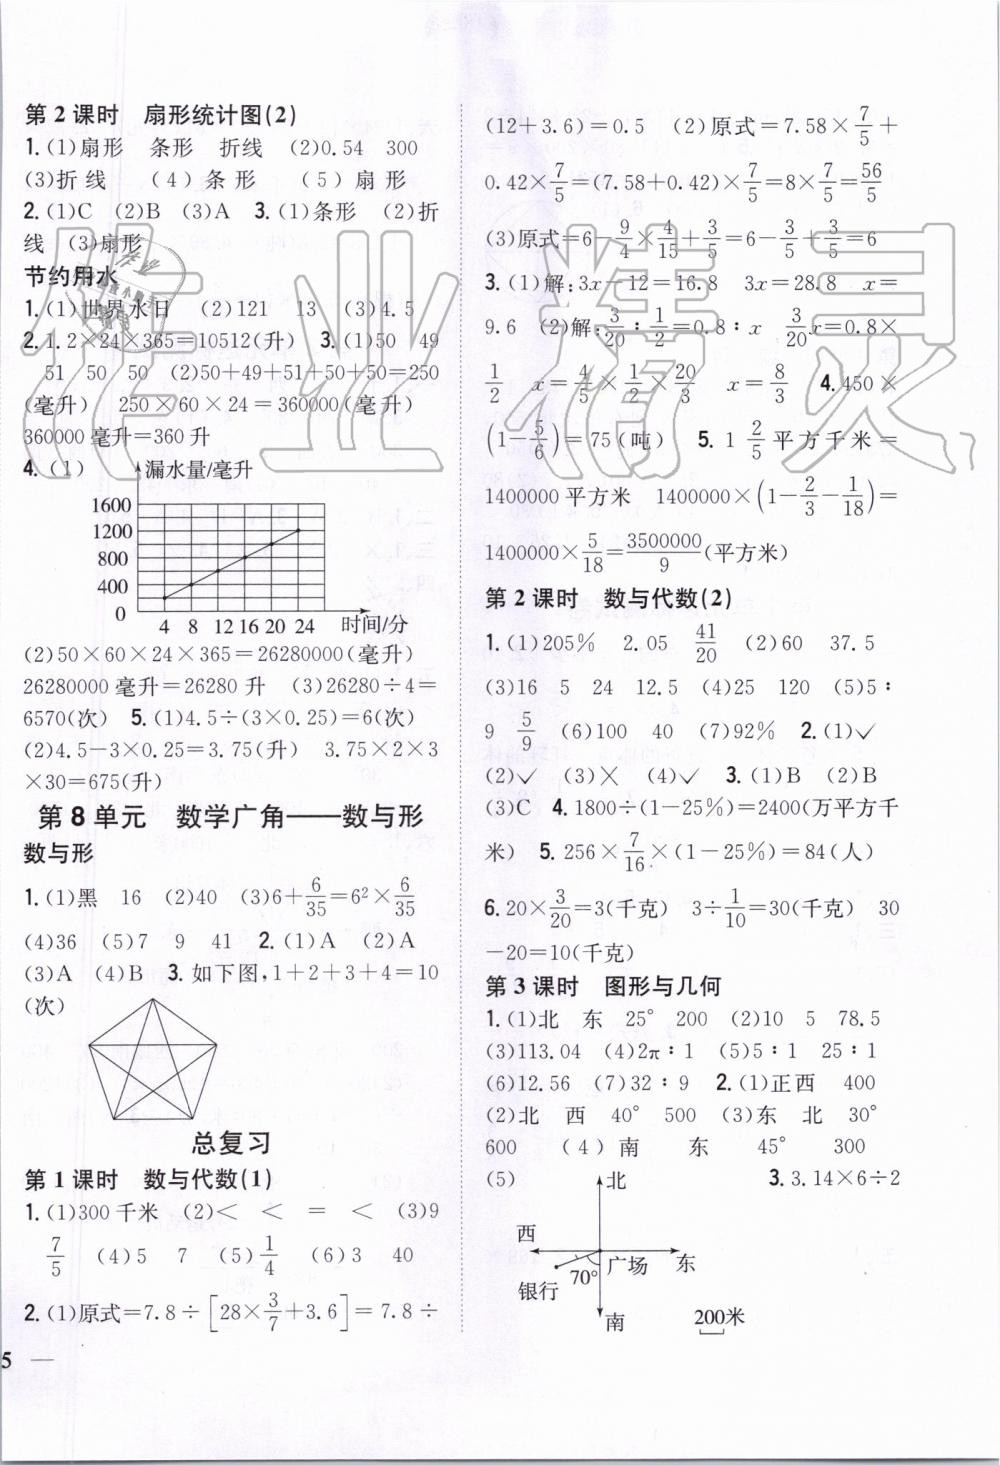 第2课时 扇形统计图(2)
1.(1)扇形 条形 折线 (2)0.54 300
(3)折线 (4)条形 (5)扇形
2.(1)C (2)B (3)A 3.(1)条形 (2)折
线 (3)扇形
节约用水
1.(1)世界水日 (2)121 13 (3)4.5
2.1.2×24×365=10512(升) 3.(1)50 49
51 50 50 (2)50+49+51+50+50=250
(毫升) 250×60×24=360000(毫升)
360000毫升=360升
4.(1) 漏水量/毫升
1600
1200
800
400
0
4 8 12 16 20 24 时间/分
(2)50×60×24×365=26280000(毫升)
26280000毫升=26280升 (3)26280÷4=
6570(次) 5.(1)4.5÷(3×0.25)=6(次)
(2)4.5-3×0.25=3.75(升) 3.75×2×3
×30=675(升)
第8单元 数学广角——数与形
数与形
1.(1)黑 16 (2)40 (3)6+6/35=6²×6/35
(4)36 (5)7 9 41 2.(1)A (2)A
(3)A (4)B 3.如下图,1+2+3+4=10
(次)
总复习
第1课时 数与代数(1)
1.(1)300千米 (2)< < = < (3)9
7/5 (4)5 7 (5)1/4 (6)3 40
2.(1)原式=7.8÷[28×3/7+3.6]=7.8÷
5 —
(12+3.6)=0.5 (2)原式=7.58×7/5+
0.42×7/5=(7.58+0.42)×7/5=8×7/5=56/5
(3)原式=6-9/4×4/15+3/5=6-3/5+3/5=6
3.(1)解:3x-12=16.8 3x=28.8 x=
9.6 (2)解:3/20:1/2=0.8:x 3/20x=0.8×
1/2 x=4/5×1/2×20/3 x=8/3 4.450×
(1-5/6)=75(吨) 5.1 2/5平方千米=
1400000平方米 1400000×(1-2/3-1/18)=
1400000×5/18=3500000/9(平方米)
第2课时 数与代数(2)
1.(1)205% 2.05 41/20 (2)60 37.5
(3)16 5 24 12.5 (4)25 120 (5)5:
9 5/9 (6)100 40 (7)92% 2.(1)✓
(2)✓ (3)× (4)✓ 3.(1)B (2)B
(3)C 4.1800÷(1-25%)=2400(万平方千
米) 5.256×7/16×(1-25%)=84(人)
6.20×3/20=3(千克) 3÷1/10=30(千克) 30
-20=10(千克)
第3课时 图形与几何
1.(1)北 东 25° 200 (2)10 5 78.5
(3)113.04 (4)2π:1 (5)5:1 25:1
(6)12.56 (7)32:9 2.(1)正西 400
(2)北 西 40° 500 (3)东 北 30°
600 (4)南 东 45° 300
(5) 北 3.3.14×6÷2
西
70° 广场 东
银行
南 200米
作业精灵